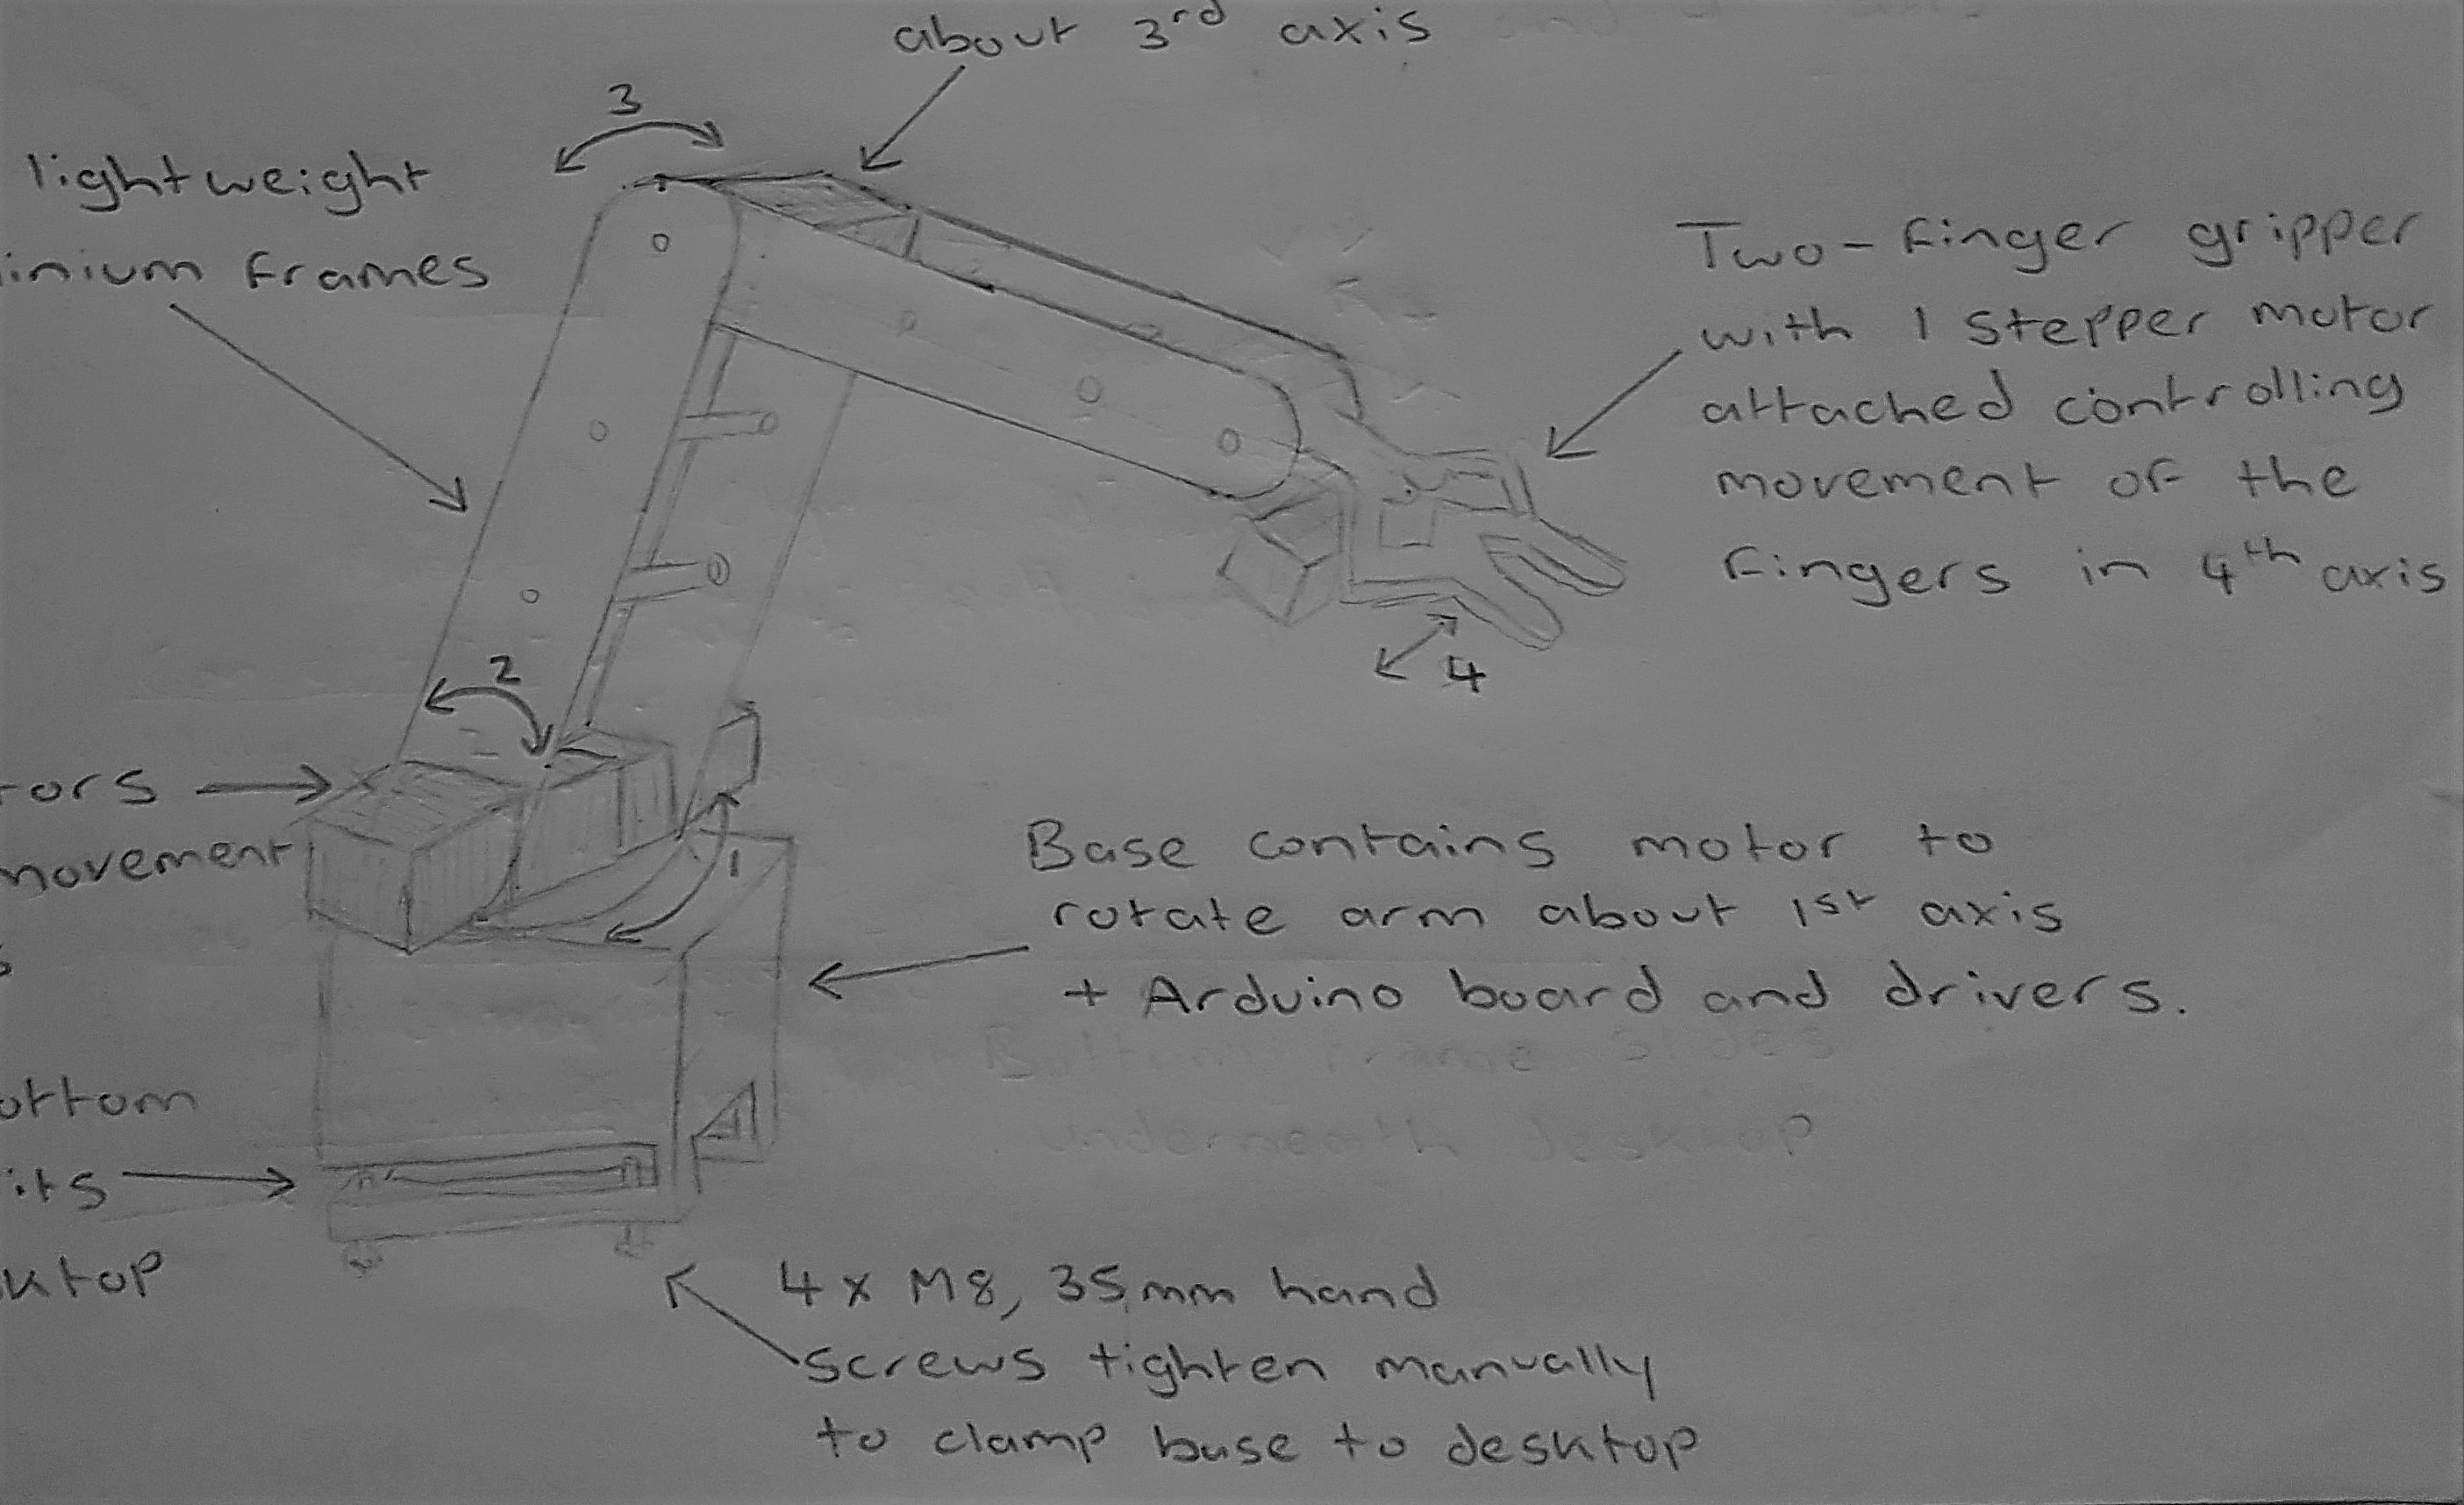 about 3rd axis
3
lightweight
inium frames
Two-finger gripper
with 1 stepper motor
attached controlling
movement of the
fingers in 4th axis
2
4
ors
movement
1
Base contains motor to
rotate arm about 1st axis
+ Arduino board and drivers.
s
Bottom frame slides
underneath desktop
ottom
its
ktop
4 x M8, 35mm hand
screws tighten manually
to clamp base to desktop